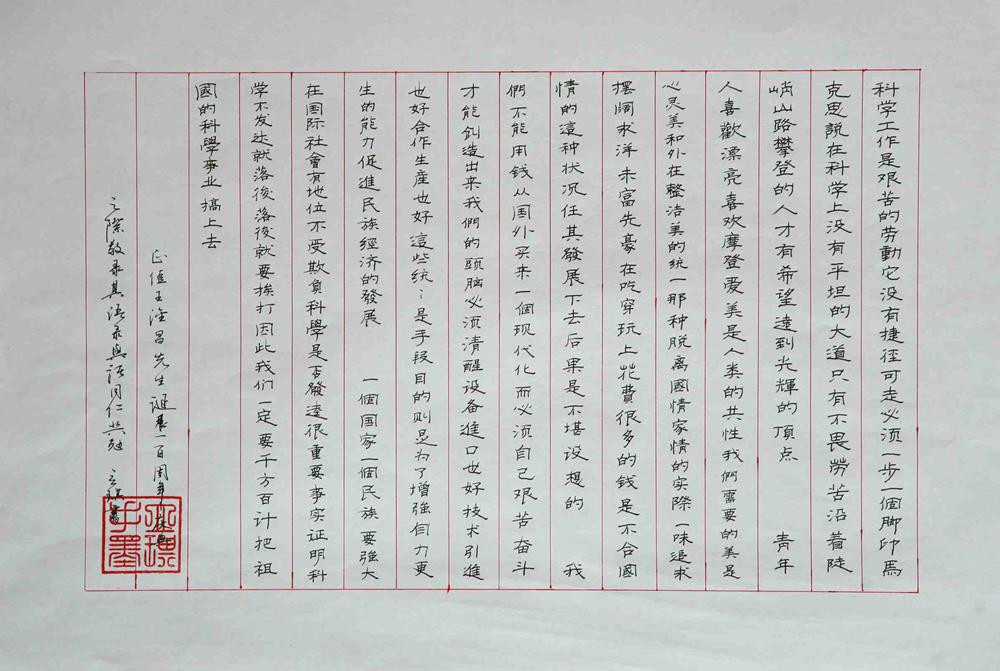 科学工作是艰苦的劳動它没有捷径可走必须一步一個脚印馬
克思説在科学上没有平坦的大道只有不畏勞苦沿着陡
峭山路攀登的人才有希望達到光輝的頂点 青年
人喜歡漂亮喜欢摩登爱美是人类的共性我們需要的美是
心灵美和外在整洁美的统一那种脱离國情家情的实際一味追求
摆阔求洋未富先豪在吃穿玩上花費很多的钱是不合國
情的這种状况任其發展下去后果是不堪设想的 我
們不能用钱从国外买来一個现代化而必须自己艰苦奋斗
才能创造出来我們的頭脑必须清醒设备進口也好技术引進
也好合作生産也好這些统：是手段目的则是为了增強自力更
生的能力促進民族經济的發展 一個国家一個民族要強大
在国际社會有地位不受欺負科學是否發達很重要事实证明科
学不发达就落後落後就要挨打因此我们一定要千方百计把祖
國的科學事业搞上去
正值王淦昌先生诞辰一百周年
之際敬录其语录與同仁共勉